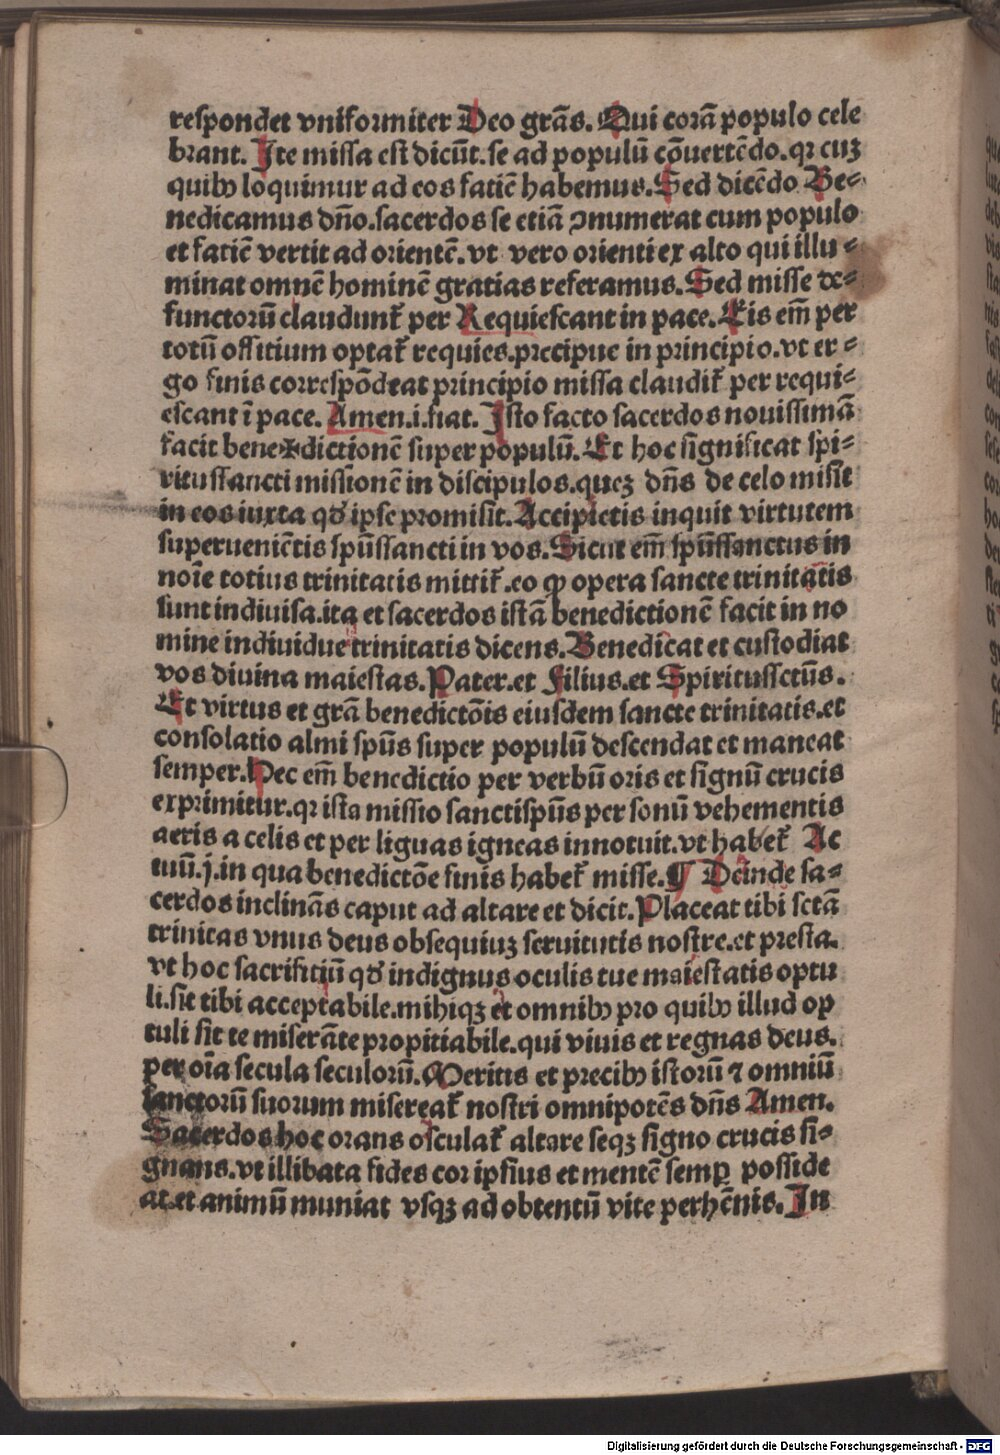 respondet vniformiter Deo grās. Qui corā populo cele
brant. Ite missa est dicūt.se ad populū cōuertēdo.qr cuȝ
quibꝰ loquimur ad eos fatiē habemus. Sed dicēdo Be⸗
nedicamus dn̄o.sacerdos se etiā ꝯnumerat cum populo
et fatiē vertit ad orientē.vt vero orienti ex alto qui illu⸗
minat omnē hominē gratias referamus. Sed misse de⸗
functorū claudunt̄ per Requiescant in pace. Eis em̄ per
totū offitium optat̄ requies.precipue in principio.vt er⸗
go finis correspōdeat principio missa claudit̄ per requi⸗
escant ī pace. Amen.i.fiat. Isto facto sacerdos nouissimā
facit bene✠dictionē super populū. Et hoc significat spi⸗
ritussancti missionē in discipulos.queȝ dn̄s de celo misit
in eos iuxta qd̄ ipse promisit. Accipietis inquit virtutem
superueniētis spūssancti in vos. Sicut em̄ spūssanctus in
noīe totius trinitatis mittit̄.eo ꝙ opera sancte trinitatis
sunt indiuisa.ita et sacerdos istā benedictionē facit in no
mine indiuidue trinitatis dicens. Benedicat et custodiat
vos diuina maiestas. Pater.et Filius.et Spiritussctūs.
Et virtus et grā benedictōis eiusdem sancte trinitatis.et
consolatio almi spūs super populū descendat et maneat
semper. Hec em̄ benedictio per verbū oris et signū crucis
exprimitur.qr ista missio sanctispūs per sonū vehementis
aeris a celis et per liguas igneas innotuit.vt habet̄ Ac
tuū.j.in qua benedictōe finis habet̄ misse. ¶ Deinde sa⸗
cerdos inclinās caput ad altare et dicit. Placeat tibi sctā
trinitas vnus deus obsequiuȝ seruitutis nostre.et presta.
vt hoc sacrifitiū qd̄ indignus oculis tue maiestatis optu
li.sit tibi acceptabile.mihiqȝ et omnibꝰ pro quibꝰ illud op
tuli sit te miserāte propitiabile.qui viuis et regnas deus.
per oīa secula seculorū. Meritis et precibꝰ istorū ⁊ omniū
sanctorū suorum misereat̄ nostri omnipotēs dn̄s Amen.
Sacerdos hoc orans osculat̄ altare seqȝ signo crucis si⸗
gnans.vt illibata fides cor ipsius et mentē semꝑ posside
at.et animū muniat vsqȝ ad obtentū vite perhēnis. In
Digitalisierung gefördert durch die Deutsche Forschungsgemeinschaft - DFG